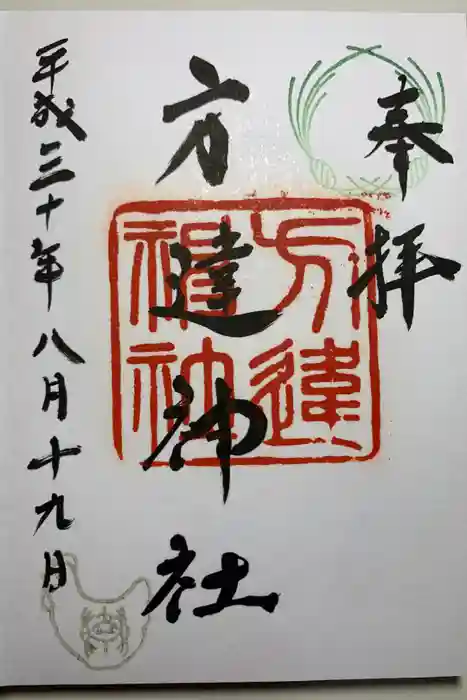 奉拝
方違神社
方違神社
平成三十年八月十九日